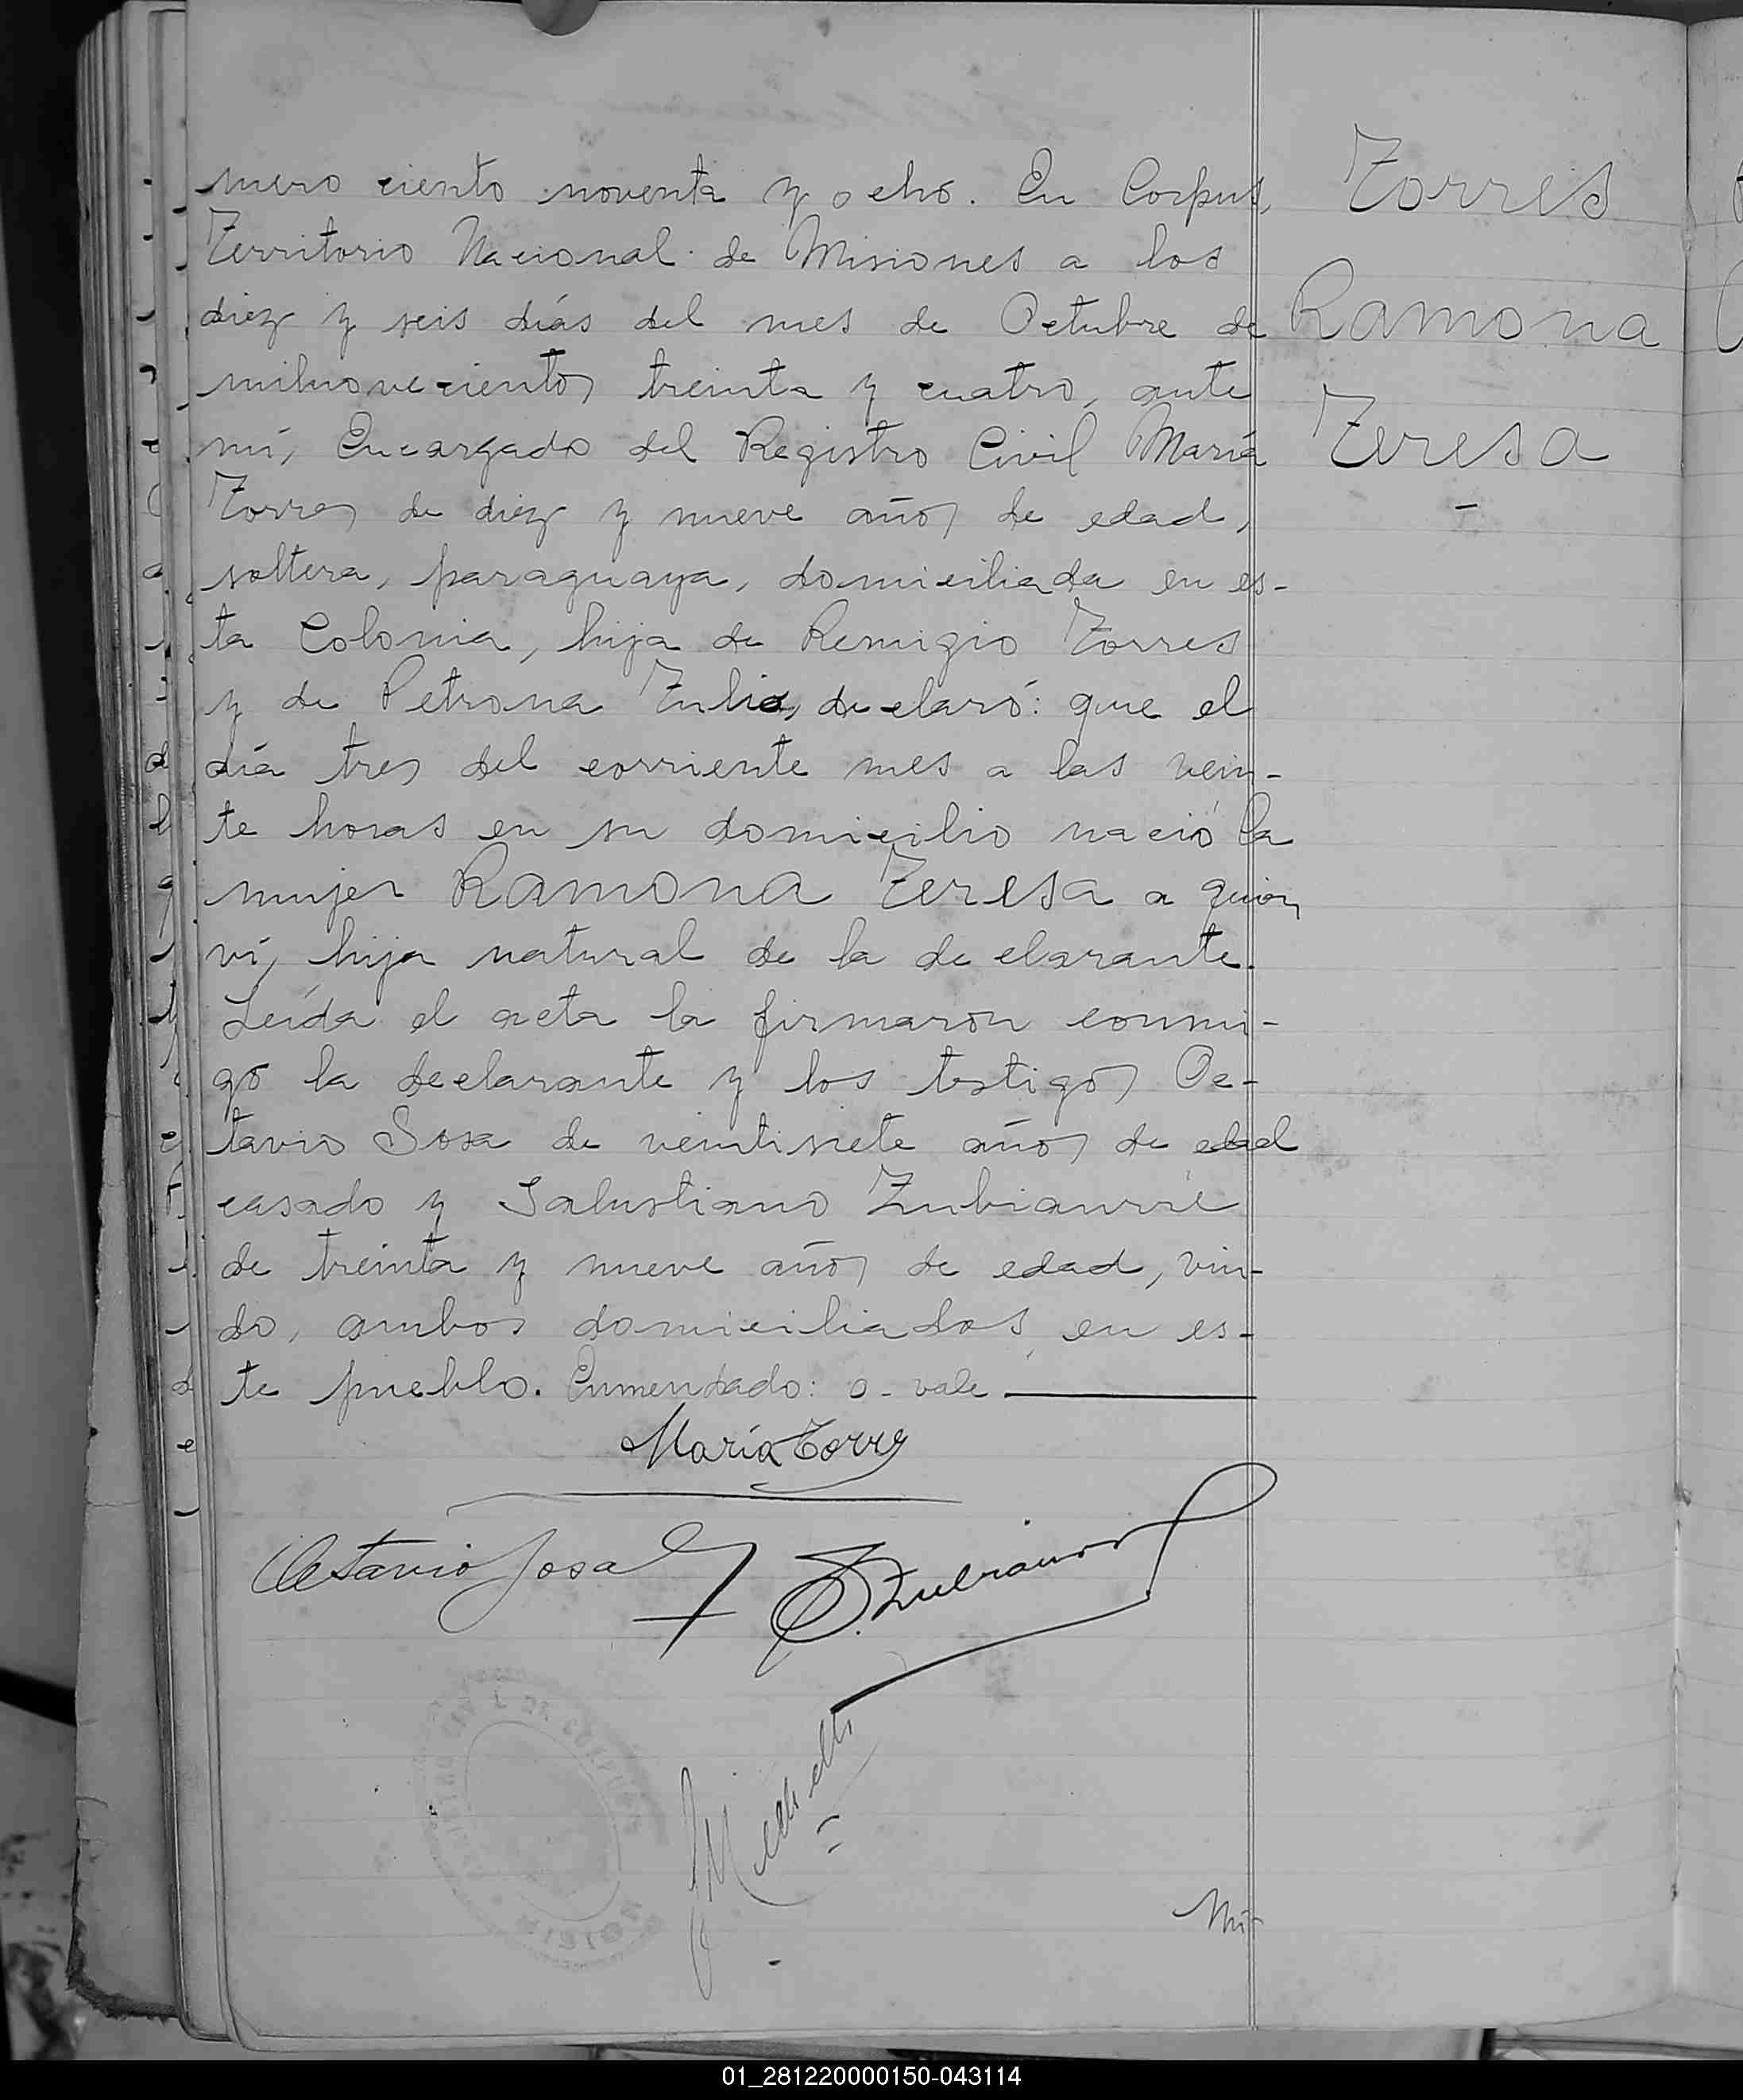 mero ciento noventa y ocho. En Corpus,
Territorio Nacional de Misiones a los
diez y seis días del mes de Octubre de
milnovecientos treinta y cuatro, ante
mí, Encargado del Registro Civil María
Torres de diez y nueve años de edad,
soltera, paraguaya, domiciliada en es-
ta Colonia, hija de Remigio Torres
y de Petrona declaró: que el
día tres del corriente mes a las vein-
te horas en su domicilio nació la
mujer Ramona Teresa a quien
ví, hija natural de la declarante.
Leída el acta la firmaron conmi-
go la declarante y los testigos Oc-
tavio Sosa de veintisiete años de edad
casado y Salustiano Zubiaurre
de treinta y nueve años de edad, viu-
do, ambos domiciliados en es-
te pueblo. Enmendado: o - vale
María Torres
Octavio Sosa
S. Zubiaurre
Mi-
Torres
Ramona
Teresa
01_281220000150-043114